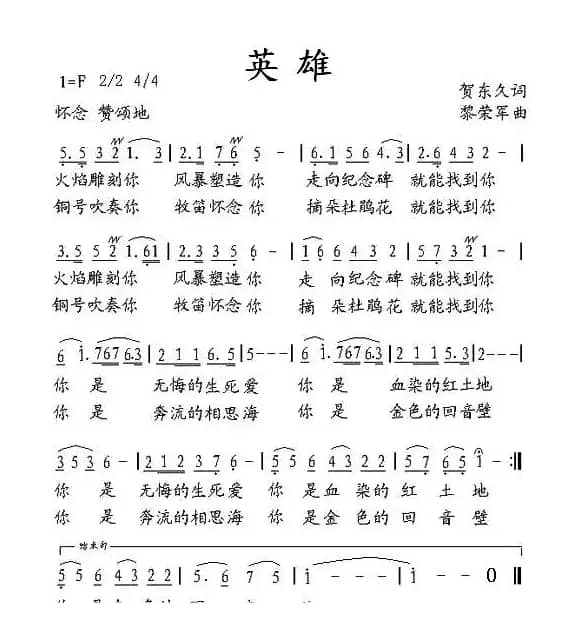 英雄
1=F 2/2 4/4
贺东久词
怀念 赞颂地
黎荣军曲
5. 5 3 2 1. 3 | 2. 1 7 6 5 - | 6. 1 5 6 4. 3 | 2. 6 3 2 2 - |
火焰雕刻你 风暴塑造你 走向纪念碑 就能找到你
铜号吹奏你 牧笛怀念你 摘朵杜鹃花 就能找到你
3. 5 5 2 1. 61 | 2. 3 3 5 6 - | 1 6 6 4 3 2 | 5 7 3 2 1 - |
火焰雕刻你 风暴塑造你 走向纪念碑就能找到你
铜号吹奏你 牧笛怀念你 摘朵杜鹃花就能找到你
6 1. 767 6.3 | 2 1 1 6. 5 | 5 - - - | 6 1. 767 6.3 | 2 1 1 2 3 | 2 - - - |
你是 无悔的生死爱 你是 血染的红土地
你是 奔流的相思海 你是 金色的回音壁
3 5 3 6 - | 2 1 2 3 7. 6 - | 5 5 6 4 3 2 2 | 5 7 6 5 1 - :‖
你是 无悔的生死爱 你是血染的红土地
你是 奔流的相思海 你是金色的回音壁
结束句
5 5 6 4 3 2 2 | 5. 6 7 5 | 1 - - - | 1 - - 0 ‖